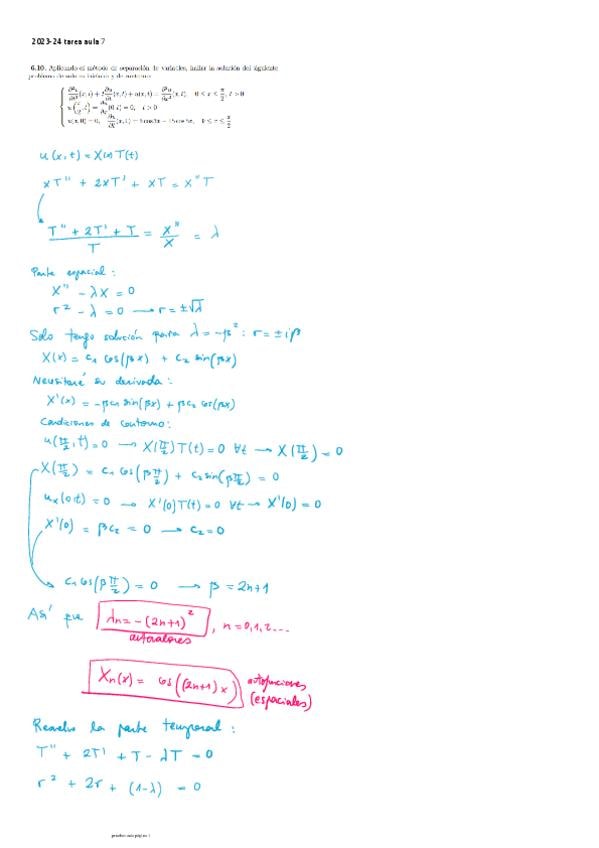 2023-24 tarea aula 7
6.10. Aplicando el método de separación de variables, hallar la solución del siguiente
problema de valores iniciales y de contorno:
∂²u/∂t²(x,t) + 2∂u/∂t(x,t) + u(x,t) = ∂²u/∂x²(x,t), 0 ≤ x ≤ π/2, t > 0
u(π/2,t) = ∂u/∂x(0,t) = 0, t > 0
u(x,0) = 0, 0 ≤ x ≤ π/2
u(x,t) = X(x)T(t)
XT'' + 2XT' + XT = X''T
T'' + 2T' + T / T = X''/X = λ
Parte espacial:
X'' - λX = 0
r² - λ = 0 → r = ±√λ
Solo tengo solución para λ = -β²: r = ±iβ
X(x) = c₁ cos(βx) + c₂ sin(βx)
Necesitaré su derivada:
X'(x) = -βc₁ sin(βx) + βc₂ cos(βx)
Condiciones de contorno:
u(π/2,t) = 0 → X(π/2)T(t) = 0 ∀t → X(π/2) = 0
X(π/2) = c₁ cos(βπ/2) + c₂ sin(βπ/2) = 0
uₓ(0,t) = 0 → X'(0)T(t) = 0 ∀t → X'(0) = 0
X'(0) = βc₂ = 0 → c₂ = 0
c₁ cos(βπ/2) = 0 → β = 2n+1
Así que λn = -(2n+1)², n = 0,1,2...
autovalores
Xn(x) = cos((2n+1)x) autofunciones
(espaciales)
Resuelvo la parte temporal:
T'' + 2T' + T - λT = 0
r² + 2r + (1-λ) = 0